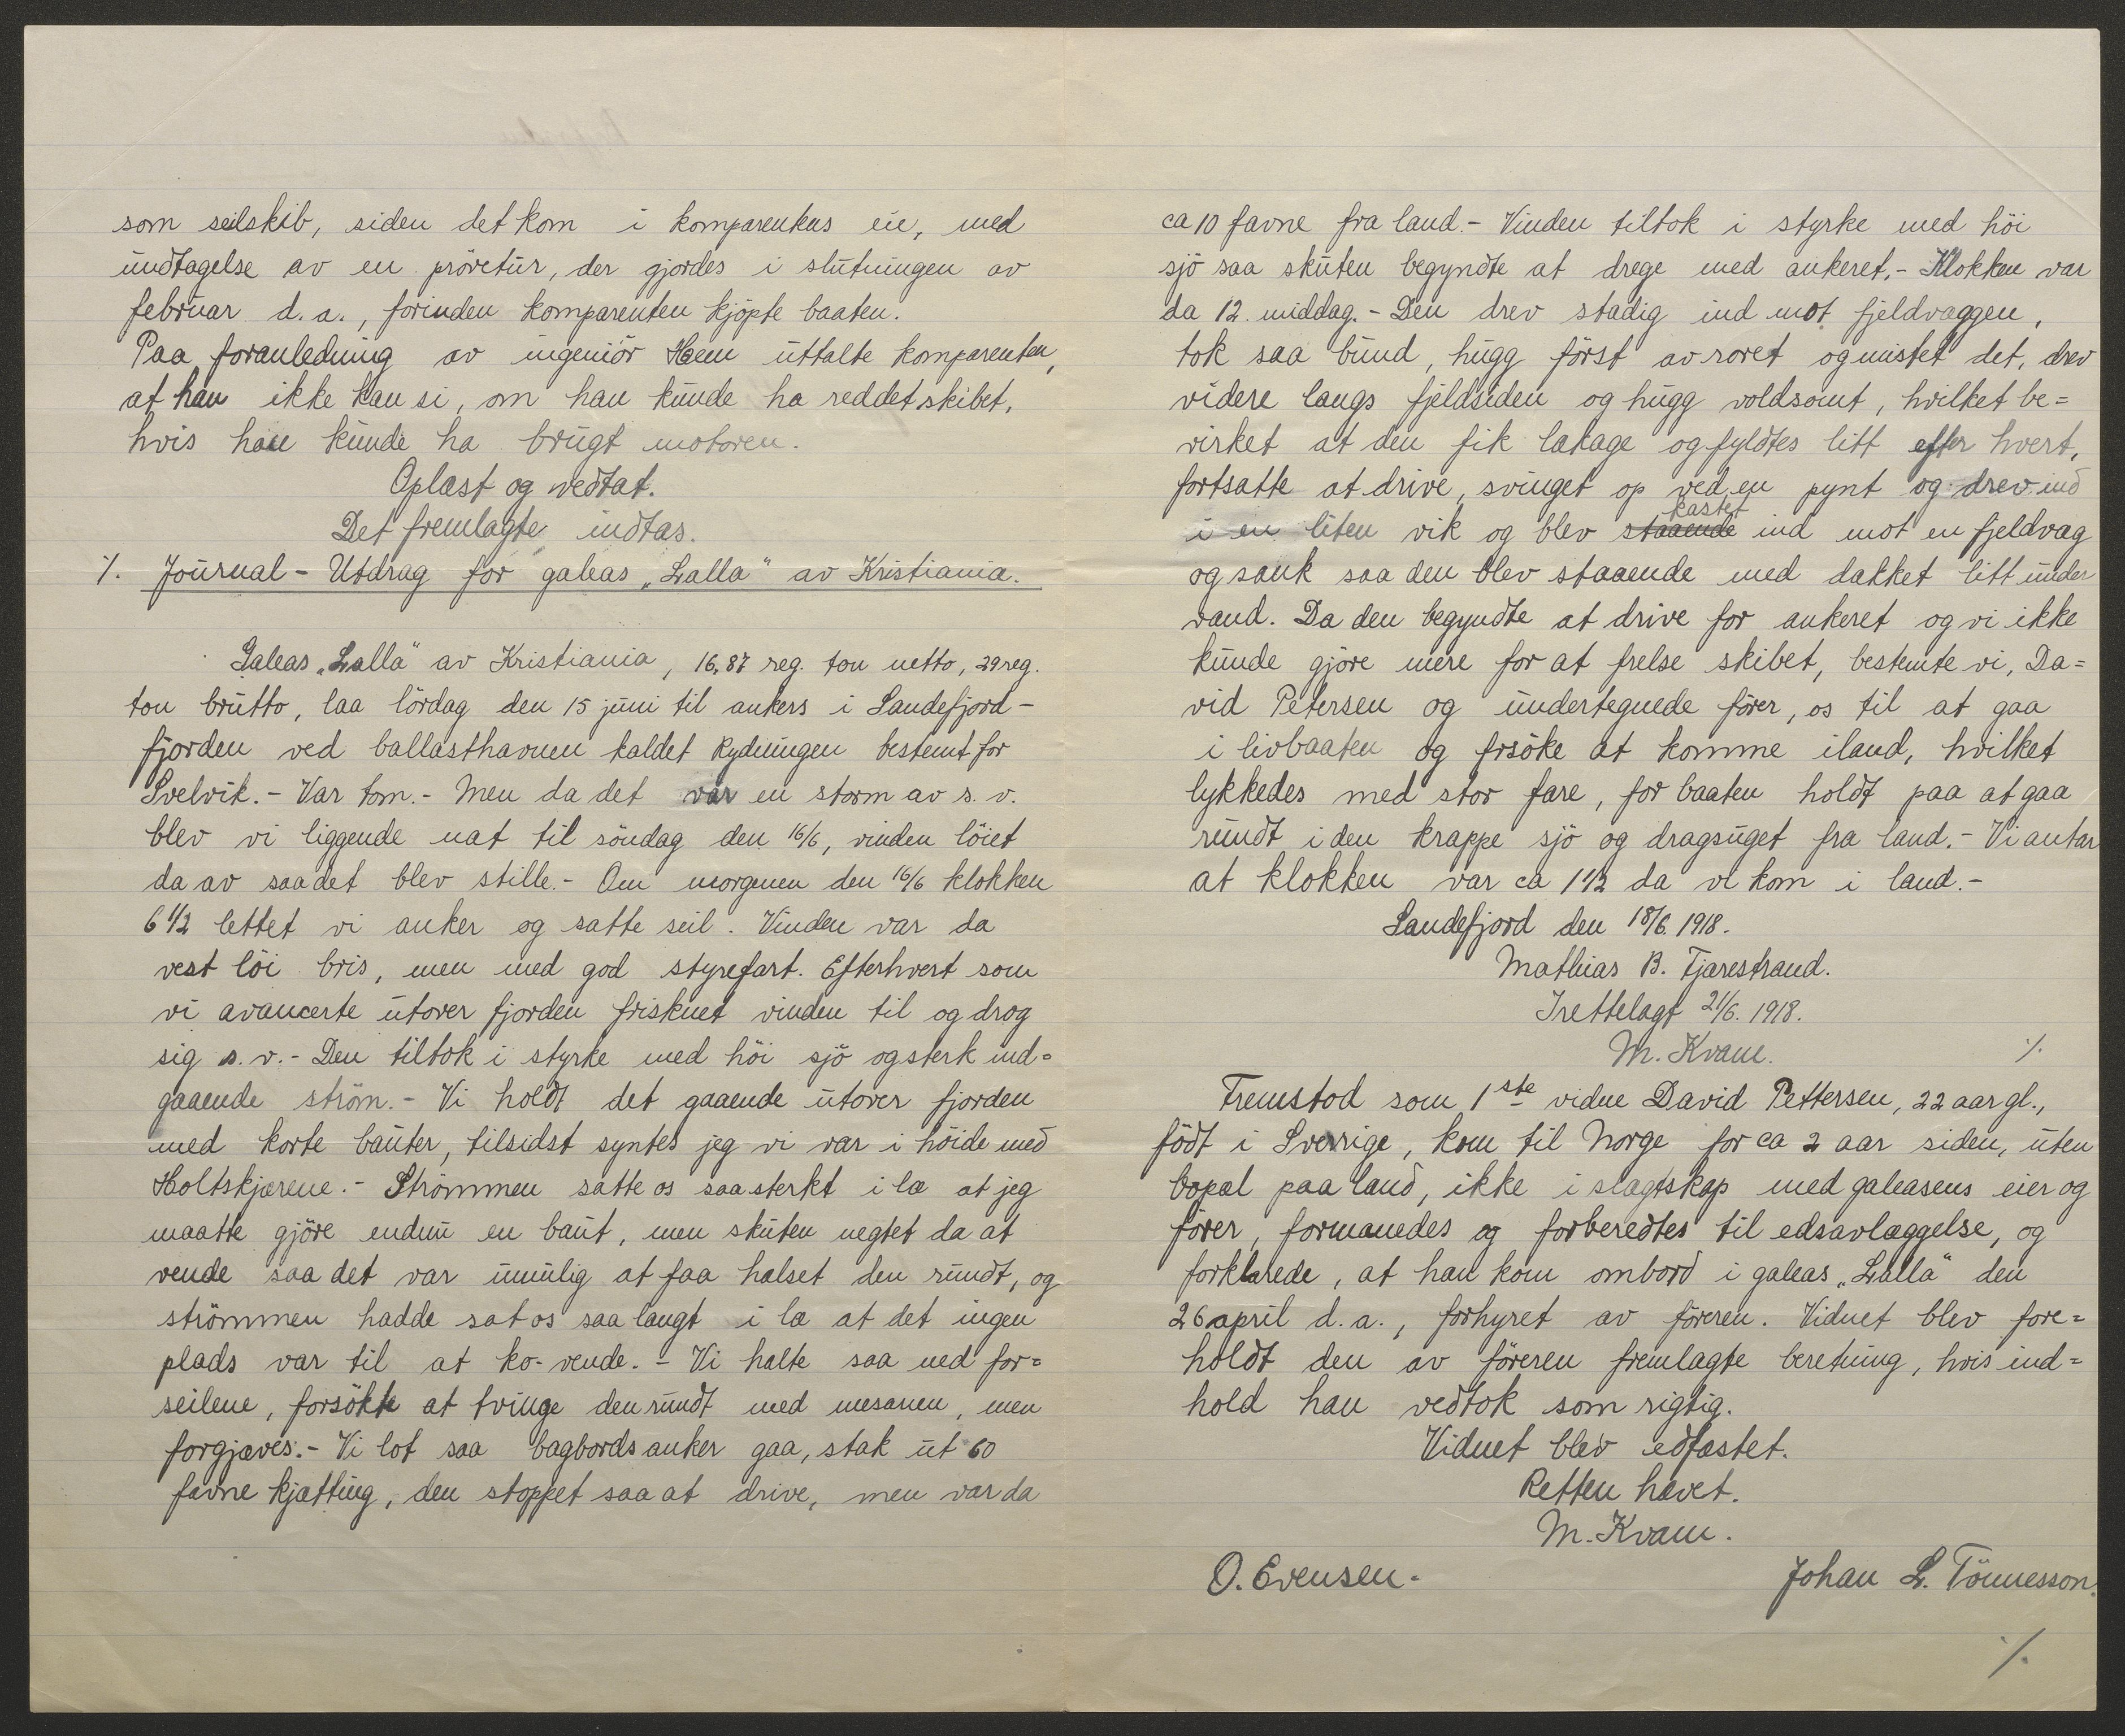 som seilskib, siden det kom i komparentens eie, med
undtagelse av en prövetur, der gjordes i slutningen av
februar d.a., forinden komparenten kjöpte baaten.
Paa foranledning av ingeniör Hem uttalte komparenten,
at han ikke kan si, om han kunde ha reddet skibet,
hvis han kunde ha brugt motoren.
Oplæst og vedtat.
Det fremlagte indtas.
·/. Journal - Utdrag for galeas „Lalla" av Kristiania.
Galeas „Lalla" av Kristiania, 16,87 reg. ton netto, 29 reg.
ton brutto, laa lördag den 15 juni til ankers i Sandefjord-
fjorden ved ballasthavnen kaldet Rydningen bestemt for
Svelvik.- Var tom.- Men da det var en storm av s.v.
blev vi liggende nat til söndag den 16/6, vinden löiet
da av saa det blev stille.- Om morgenen den 16/6 klokken
6 1/2 lettet vi anker og satte seil. Vinden var da
vest löi bris, men med god styrefart. Efterhvert som
vi avancerte utover fjorden frisknet vinden til og drog
sig s.v.- Den tiltok i styrke med höi sjö og sterk ind=
gaaende ström.- Vi holdt det gaaende utover fjorden
med korte bauter, tilsidst syntes jeg vi var i höide med
Holtskjærene.- Strömmen satte os saa sterkt i læ at jeg
maatte gjöre endnu en baut, men skuten negtet da at
vende saa det var umulig at faa halset den rundt, og
strömmen hadde sat os saa langt i læ at det ingen
plads var til at ko-vende.- Vi halte saa ned for=
seilene, forsökte at tvinge den rundt med mesanen, men
forgjæves.- Vi lot saa bagbords anker gaa, stak ut 60
favne kjætting, den stoppet saa at drive, men var da
ca 10 favne fra land.- Vinden tiltok i styrke med höi
sjö saa skuten begyndte at drege med ankeret.- Klokken var
da 12 middag.- Den drev stadig ind mot fjeldvæggen,
tok saa bund, hugg först av roret og mistet det, drev
videre langs fjeldsiden og hugg voldsomt, hvilket be=
virket at den fik lækage og fyldtes litt efter hvert,
fortsatte at drive, svinget op ved en pynt og drev ind
i en liten vik og blev staaende kastet ind mot en fjeldvæg
og sank saa den blev staaende med dækket litt under
vand. Da den begyndte at drive for ankeret og vi ikke
kunde gjöre mere for at frelse skibet, bestemte vi, Da=
vid Petersen og undertegnede förer, os til at gaa
i livbaaten og frsöke at komme iland, hvilket
lykkedes med stor fare, for baaten holdt paa at gaa
rundt i den krappe sjö og dragsuget fra land.- Vi antar
at klokken var ca 1 1/2 da vi kom i land.-
Sandefjord den 18/6 1918.
Mathias B. Tjærestrand.
Irettelagt 21/6. 1918.
M. Kvam.
·/.
Fremstod som 1ste vidne David Pettersen, 22 aar gl.,
födt i Sverrige, kom til Norge for ca 2 aar siden, uten
bopæl paa land, ikke i slagtskap med galeasens eier og
förer, formanedes og forberedtes til edsavlæggelse, og
forklarede, at han kom ombord i galeas „Lalla" den
26 april d.a., forhyret av föreren. Vidnet blev fore=
holdt den av föreren fremlagte beretning, hvis ind=
hold han vedtok som rigtig.
Vidnet blev edfæstet.
Retten hævet.
M. Kvam.
O. Evensen.
Johan L. Tönnesson.
·/.